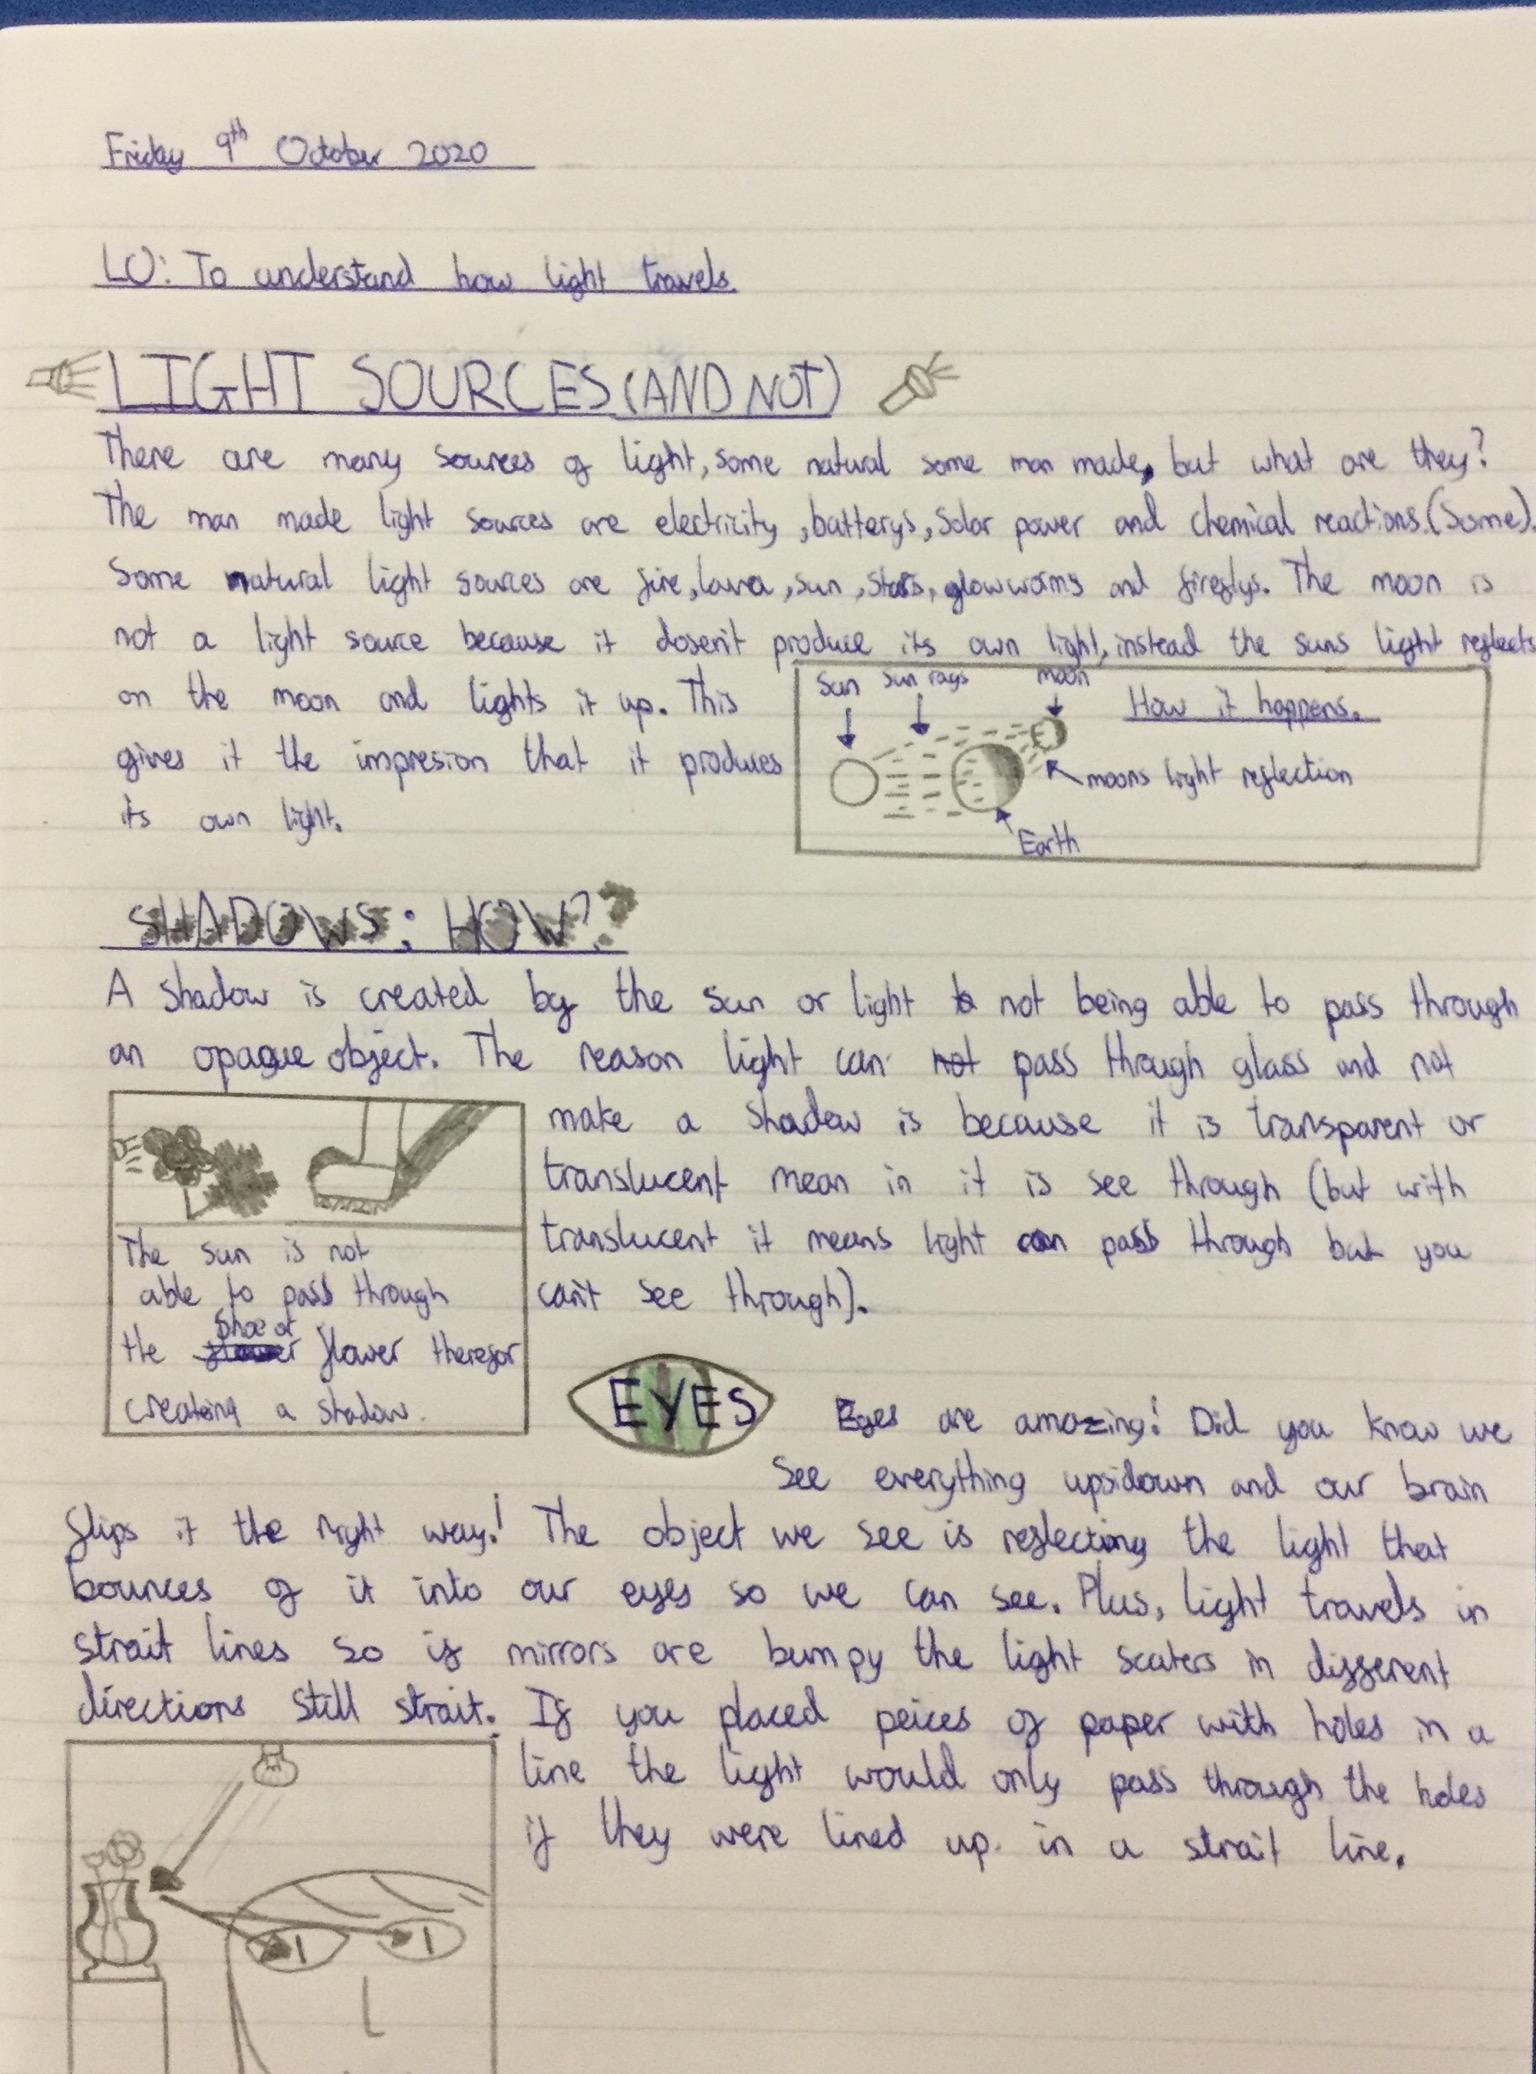 Friday 9th October 2020
LO: To understand how light travels.
LIGHT SOURCES (AND NOT)
There are many sources of light, some natural some man made, but what are they?
The man made light sources are electricity, battery's, solar power and chemical reactions. (Some).
Some natural light sources are fire, lava, sun, stars, glowworms and fireflys. The moon is
not a light source because it dosen't produce its own light, instead the suns light reflects
on the moon and lights it up. This
gives it the impresion that it produces
its own light.
Sun sun rays moon
How it happens.
moons light reflection
Earth
SHADOWS: HOW??
A shadow is created by the sun or light not being able to pass through
an opaque object. The reason light can pass through glass and not
make a shadow is because it is transparent or
translucent mean in it is see through (but with
translucent it means light can pass through but you
can't see through).
The sun is not
able to pass through
the shoe or flower therefor
creating a shadow.
EYES
Eyes are amazing! Did you know we
see everything upsidown and our brain
flips it the right way! The object we see is reflecting the light that
bounces of it into our eyes so we can see. Plus, light travels in
strait lines so if mirrors are bumpy the light scaters in different
directions still strait. If you placed peices of paper with holes in a
line the light would only pass through the holes
if they were lined up in a strait line.